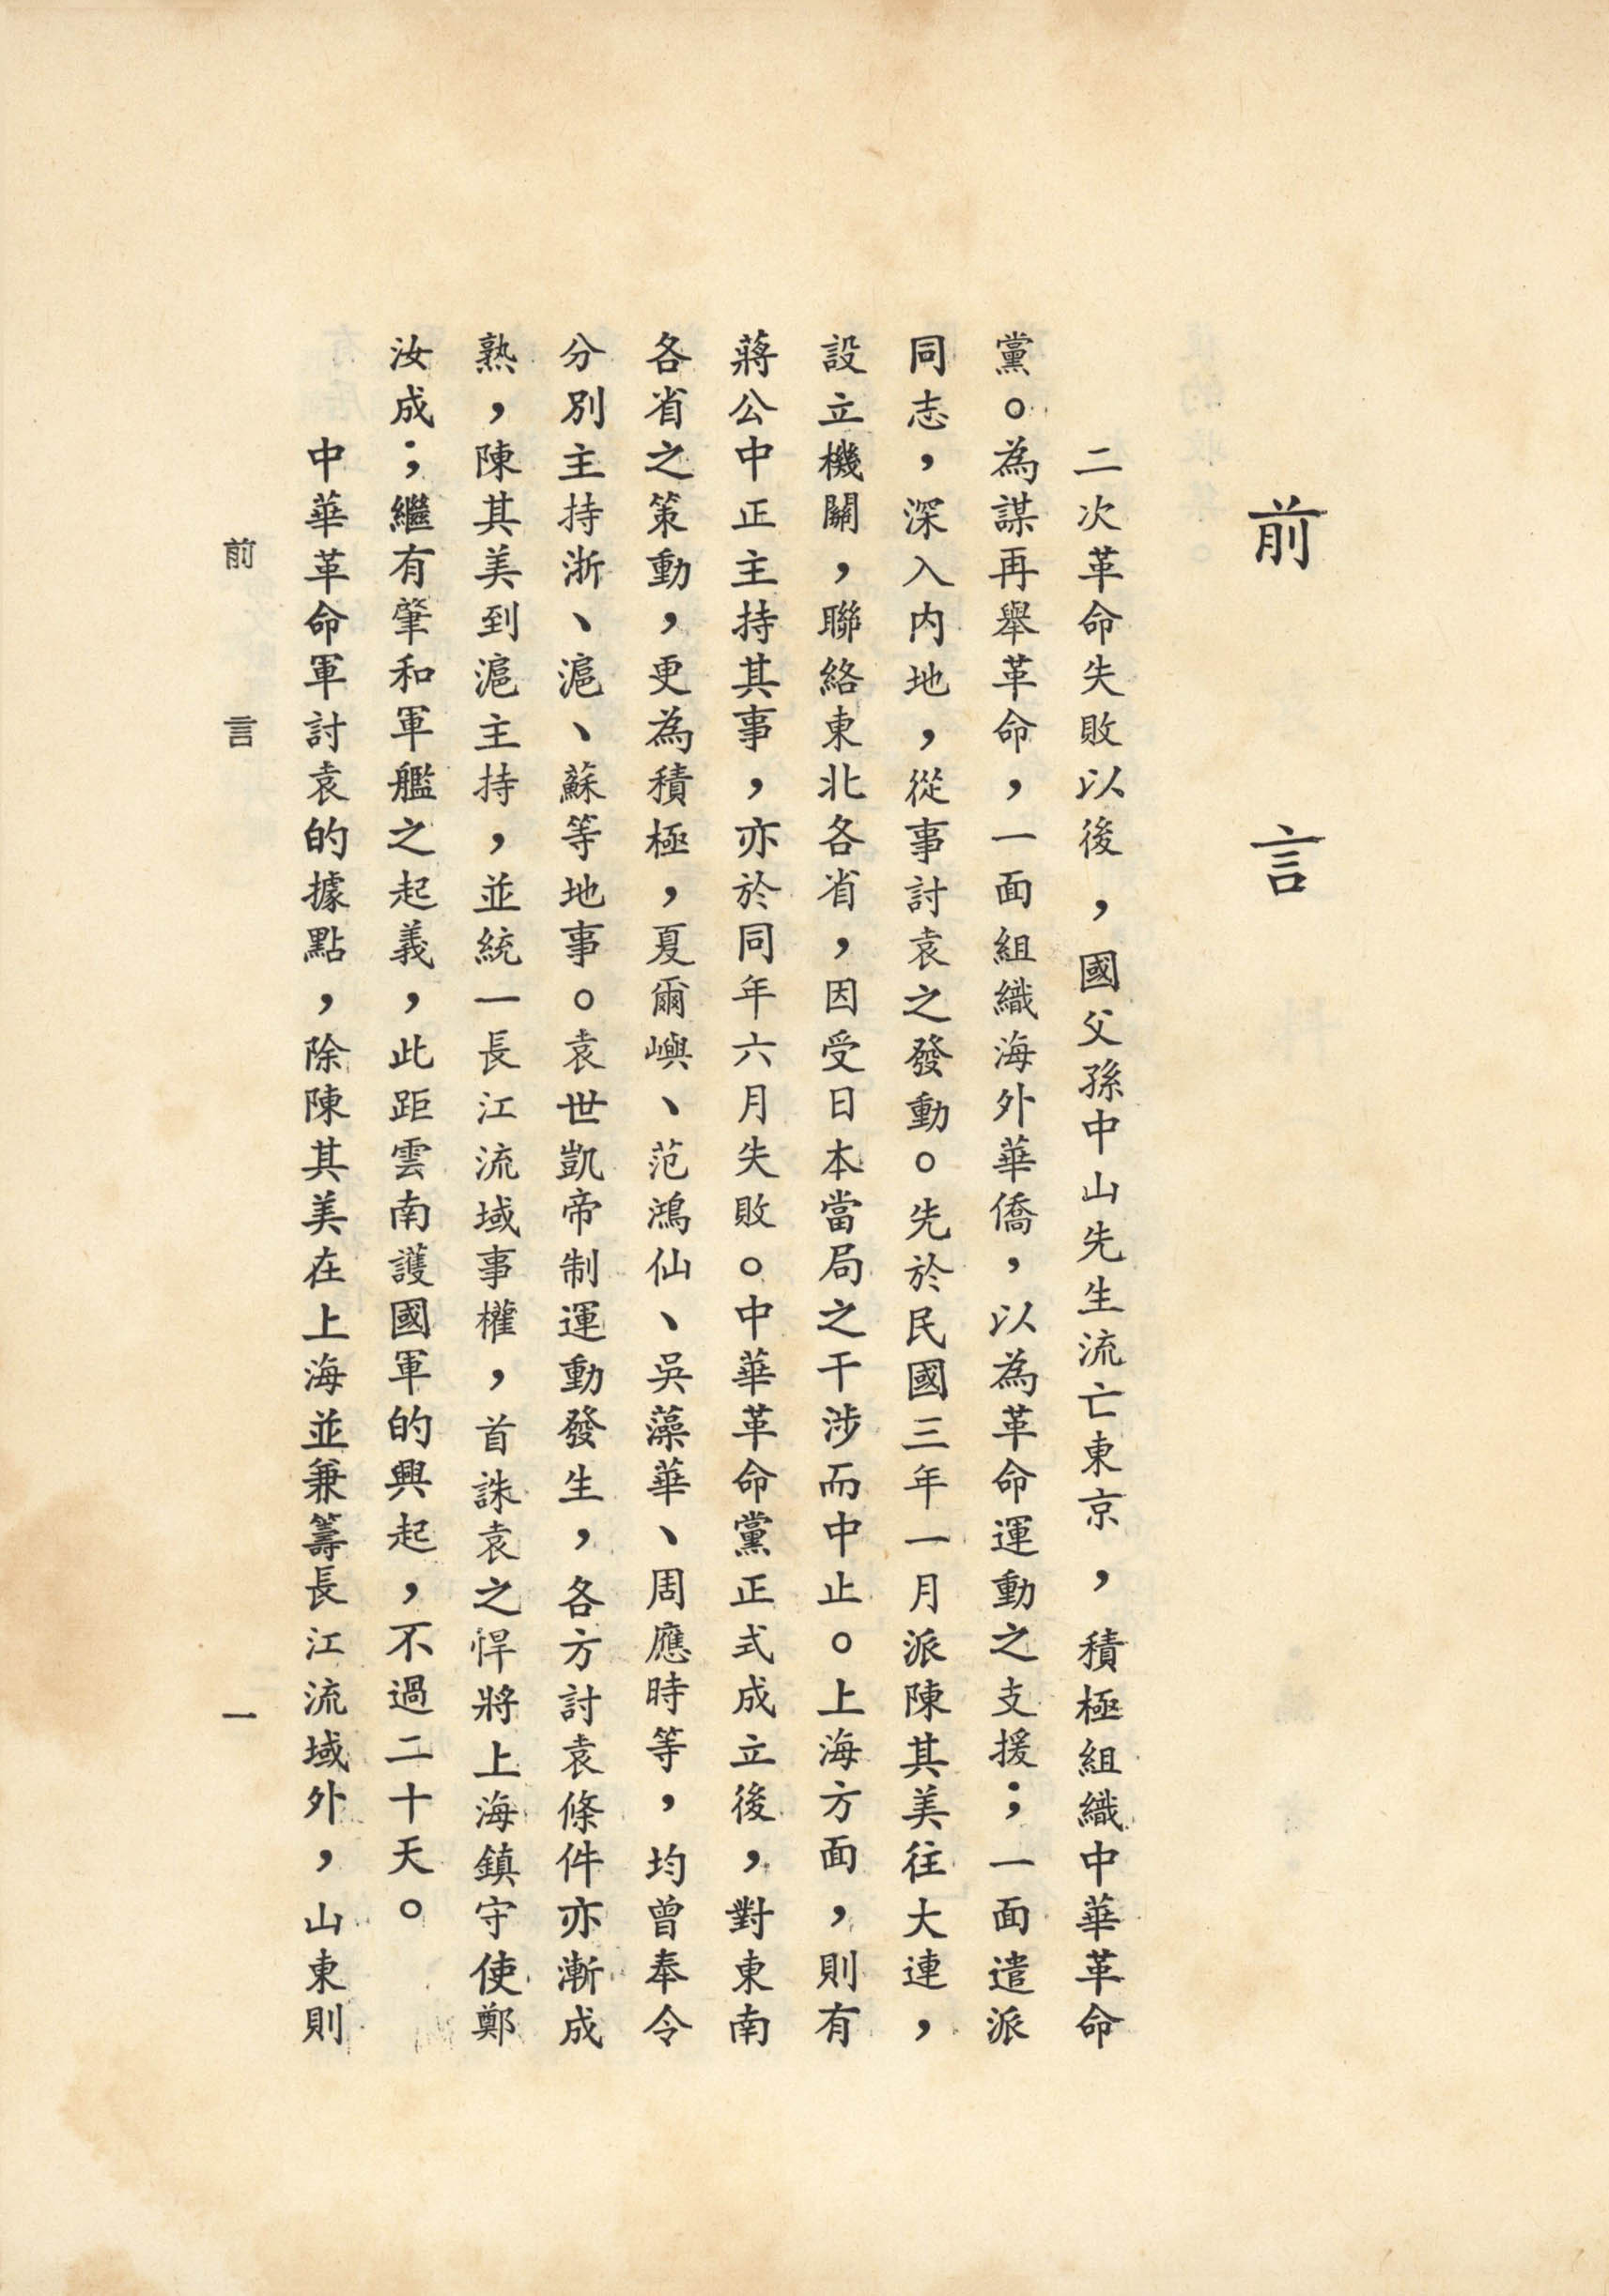 前言
二次革命失敗以後，國父孫中山先生流亡東京，積極組織中華革命
黨。為謀再舉革命，一面組織海外華僑，以為革命運動之支援；一面遣派
同志，深入内地，從事討袁之發動。先於民國三年一月派陳其美往大連，
設立機關，聯絡東北各省，因受日本當局之干涉而中止。上海方面，則有
蔣公中正主持其事，亦於同年六月失敗。中華革命黨正式成立後，對東南
各省之策動，更為積極，夏爾嶼、范鴻仙、吳藻華、周應時等，均曾奉令
分別主持浙、滬、蘇等地事。袁世凱帝制運動發生，各方討袁條件亦漸成
熟，陳其美到滬主持，並統一長江流域事權，首誅袁之悍將上海鎮守使鄭
汝成；繼有肇和軍艦之起義，此距雲南護國軍的興起，不過二十天。
中華革命軍討袁的據點，除陳其美在上海並兼籌長江流域外，山東則
前言 一